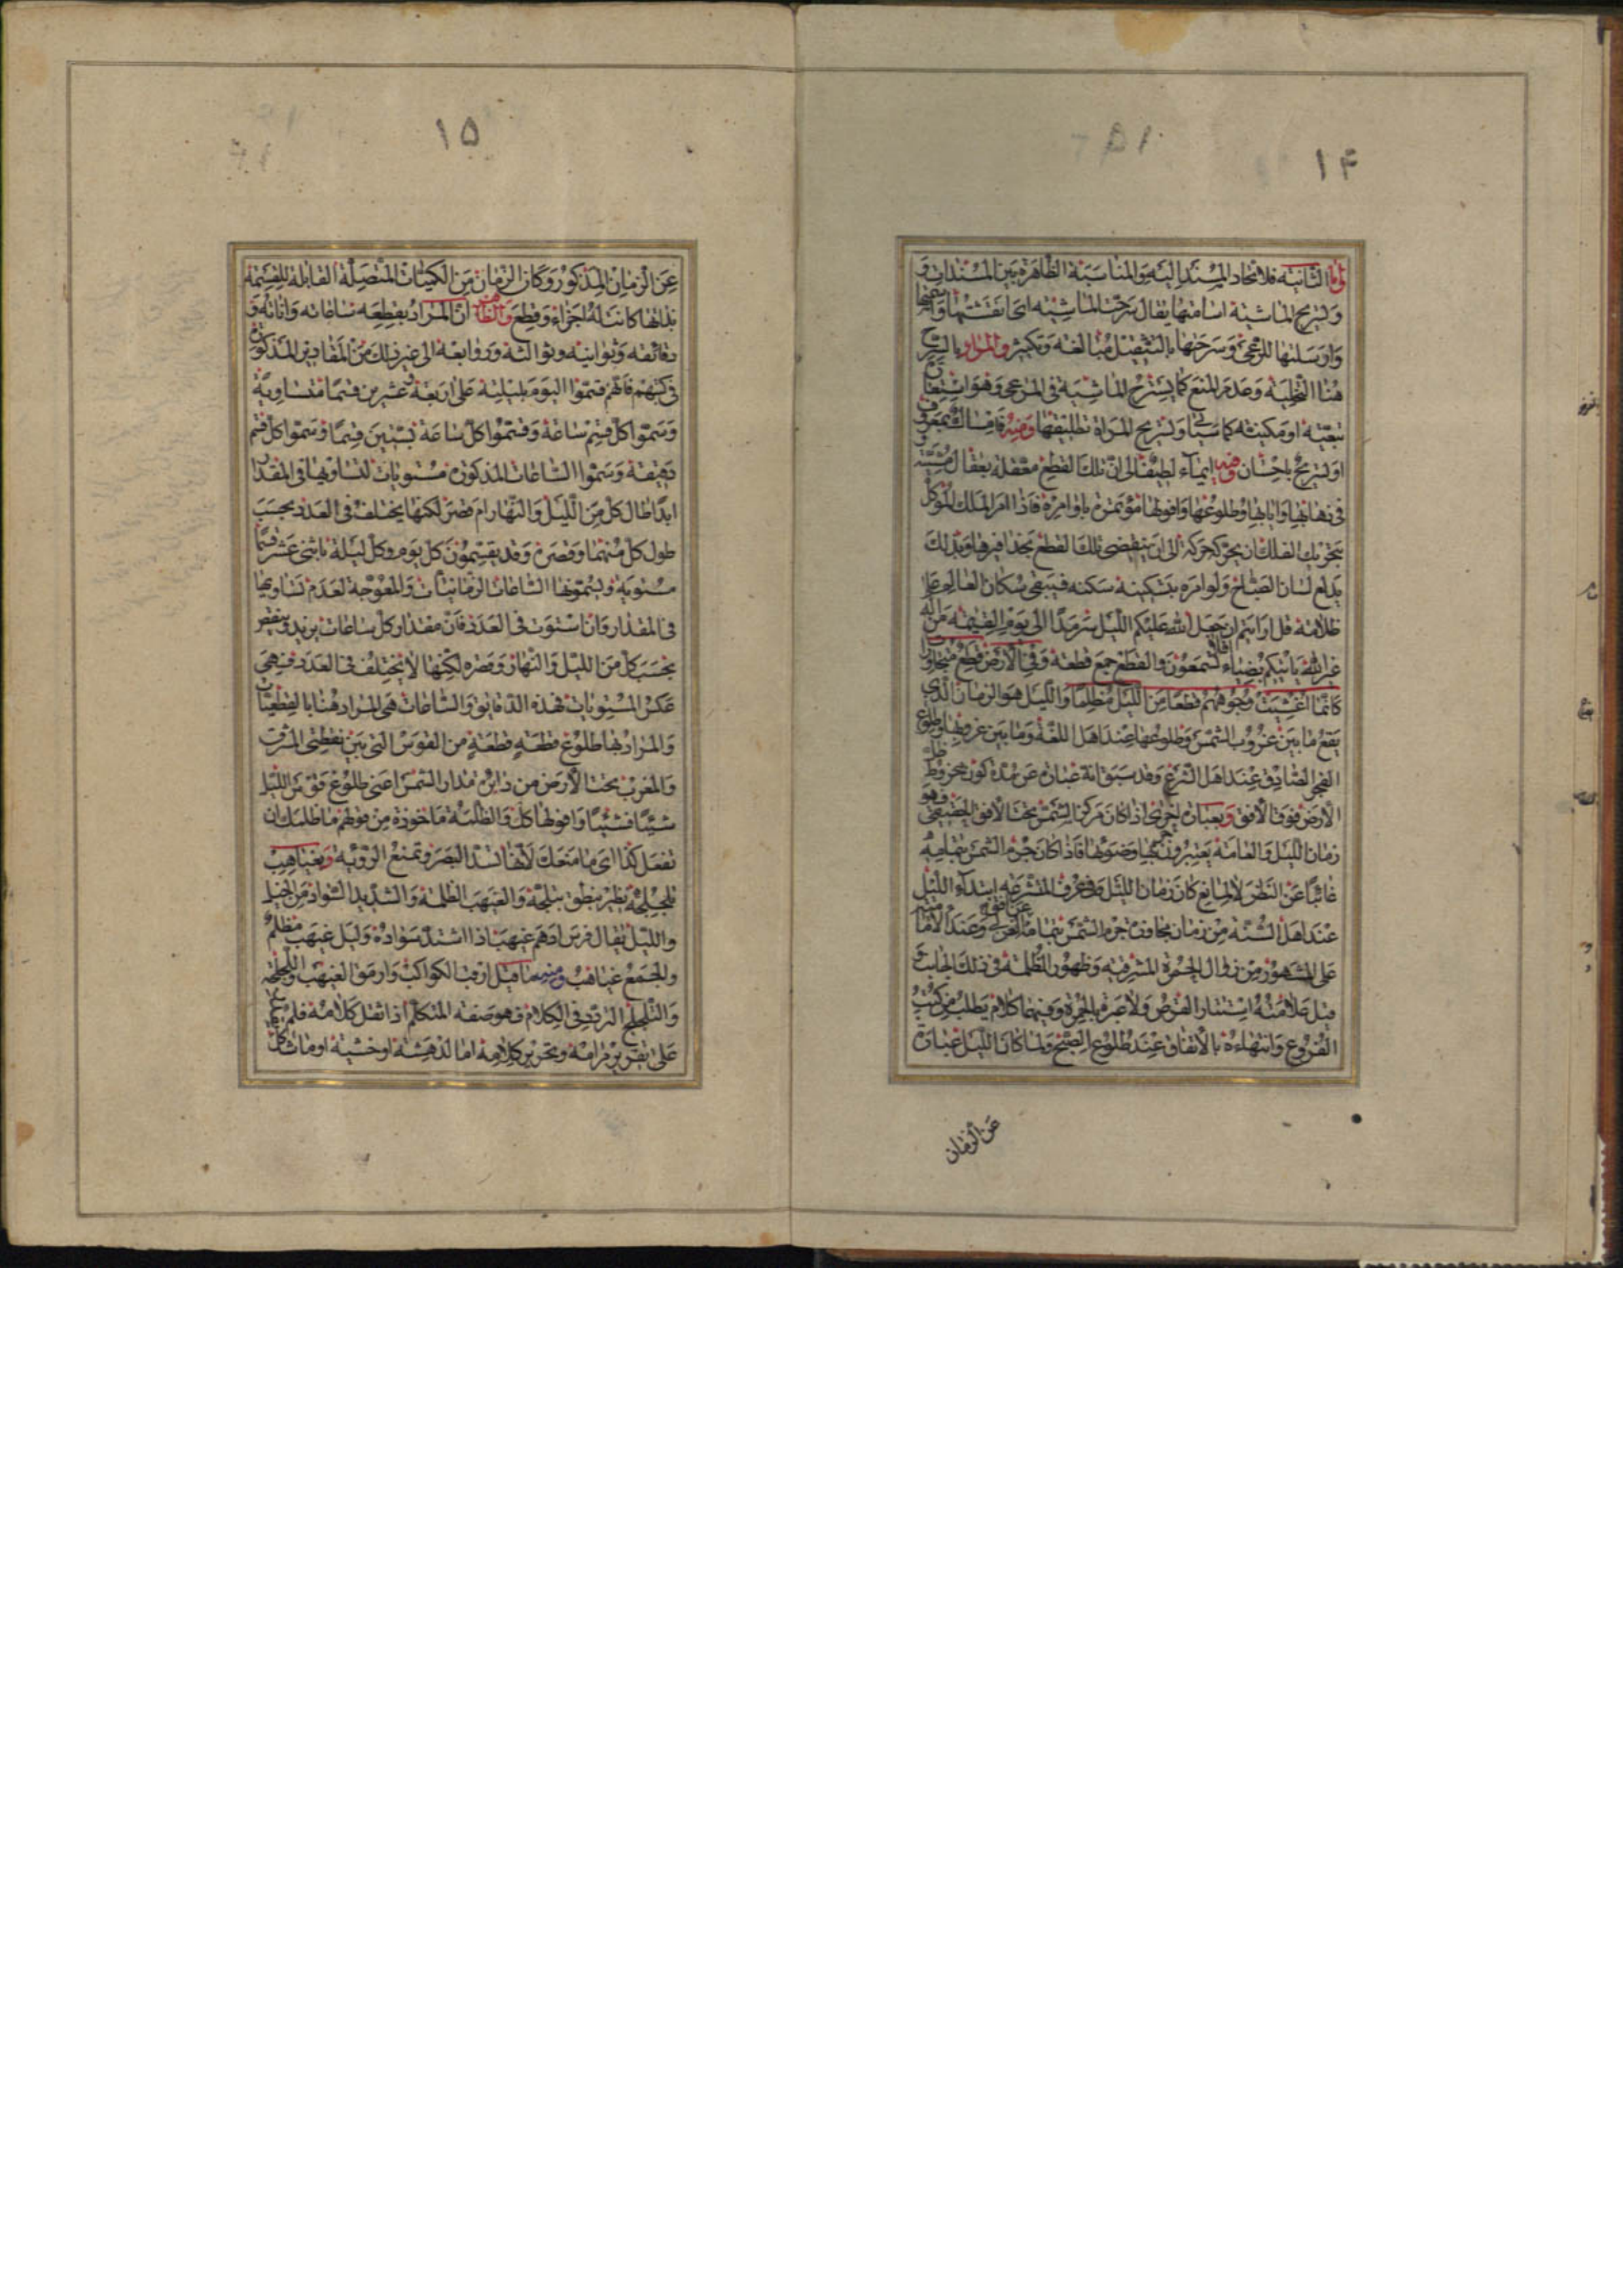 ۱۴
واما الثانیه فلاتحاد المسند الیه والمناسبة الظاهرة بین المسندات و
وتسریح الماشیة اسامتها یقال سرحت الماشیه ای نفشتها
وارسلتها للرعی وسرحتها بالتثقیل مبالغة وتکثیر والمراد بالتسریح
هنا التخلیه وعدم المنع کما یسترح الماشیة فی المرعی وهو استعارة
تبعیّه او مکنیة کما سیاتی وتسریح المراة تطلیقها ومنه فامساک بمعروف
او تسریح باحسان وفیه ایماء لطیف الی ان تلک القطع معقلة بعقال
فی ذهابها وایابها وطلوعها وافولها مؤتمرة باوامره فاذا امر الملک الموکل
بتحریک الفلک ان یحرکه حرکه الی ان ینقضی تلک القطع بحذافیرها وبذلک
یدلع لسان الصباح ولو امره بتسکینه سکنه فیبقی سکان العالم علی
ظلامه قل ارایتم ان جعل الله علیکم اللیل سرمدا الی یوم القیمة من اله
غیر الله یاتیکم بضیاء افلا تسمعون والقطع جمع قطعة وفی الارض قطع متجاورات
کانما اغشیت وجوههم قطعا من اللیل مظلما واللیل هو الزمان الذی
یقع ما بین غروب الشمس وطلوعها عند اهل اللغة وما بین غروبها وطلوع
الفجر الصادق عند اهل الشرع وقد سبق انه عبارة عن مدة کون مخروط ظل
الارض فوق الافق وبعبارة اخری اذا کان مرکز الشمس تحت الافق الحقیقی فهو
زمان اللیل والعامة یعتبرون جرمها وضوئها فاذا کان جرم الشمس بتمامه
غائبا عن النظر لا لمانع کان زمان اللیل وفی عرف المتشرعه ابتداء اللیل
عند اهل السنة من زمان مجاوزة جرم الشمس بتمامها عن افق المغرب وعند الامامیه
علی المشهور من زوال الحمرة المشرقیه وظهور الظلمة فی ذلک الجانب و
قیل علامته استتار القرص ولا عبرة بالحمرة وفیهما کلام یطلب من کتب
الفروع وانتهاءه بالاتفاق عند طلوع الصبح ولما کان اللیل عبارة
عن الزمان
۱۵
عن الزمان المذکور وکان الزمان من الکمیات المتصلة القابلة للقسمة
بذاتها کانت له اجزاء وقطع والظاهر ان المراد بقطعه ساعاته واناته و
دقائقه وثوانیه وثوالثه وروابعه الی غیر ذلک من المقادیر المذکورة
فی کتبهم فانهم قسموا الیوم بلیلته علی اربعة وعشرین قسما متساویة
وسموا کل قسم ساعة وقسموا کل ساعة بستین قسما وسموا کل قسم
دقیقة وسموا الساعات المذکورة مستویات لتساویها فی المقدار
ابدا طال کل من اللیل والنهار ام قصر لکنها یختلف فی العدد بحسب
طول کل منهما وقصره وقد یقسمون کل یوم وکل لیلة باثنی عشر قسما
مستویة ویسمونها الساعات الزمانیات والمعوجة لعدم تساویها
فی المقدار وان استوت فی العدد فان مقدار کل ساعات یزید وینقص
بحسب کل من اللیل والنهار وقصره لکنها لا یختلف فی العدد فهی
عکس المستویات فهذه الدقایق والساعات هی المراد هنا بالقطعیات
والمراد بها طلوع قطعة قطعة من القوس التی بین نقطتی المشرق
والمغرب تحت الارض من دائرة مدار الشمس اعنی طلوع فوق من اللیل
شیئا فشیئا وافولها کل والظلمة ماخوذة من قولهم ما ظلمک ان
تفعل کذا ای ما منعک لانها تسد البصر وتمنع الرؤیة وبغیاهب
تلجلجه نظیر ینطق بتلجه والغیهب الظلمة والشدید السواد من الخیل
واللیل یقال فرس ادهم غیهب اذا اشتد سواده ولیل غیهب مظلم
والجمع غیاهب ومنه ما قیل ارقب الکواکب وارمق الغیهب واللجلجه
والتلجلج التردد فی الکلام فهو صفة المتکلم اذا ثقل کلامه فلم
علی تقریر مرامه وتحریر کلامه اما لدهشة او خشیة او ما شاکل